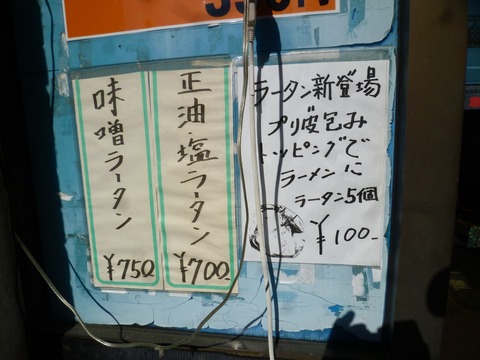 ラータン新登場
プリ皮包み
トッピングで
ラーメンに
ラータン5個
¥100-
正油・塩ラータン
¥700-
味噌ラータン
¥750